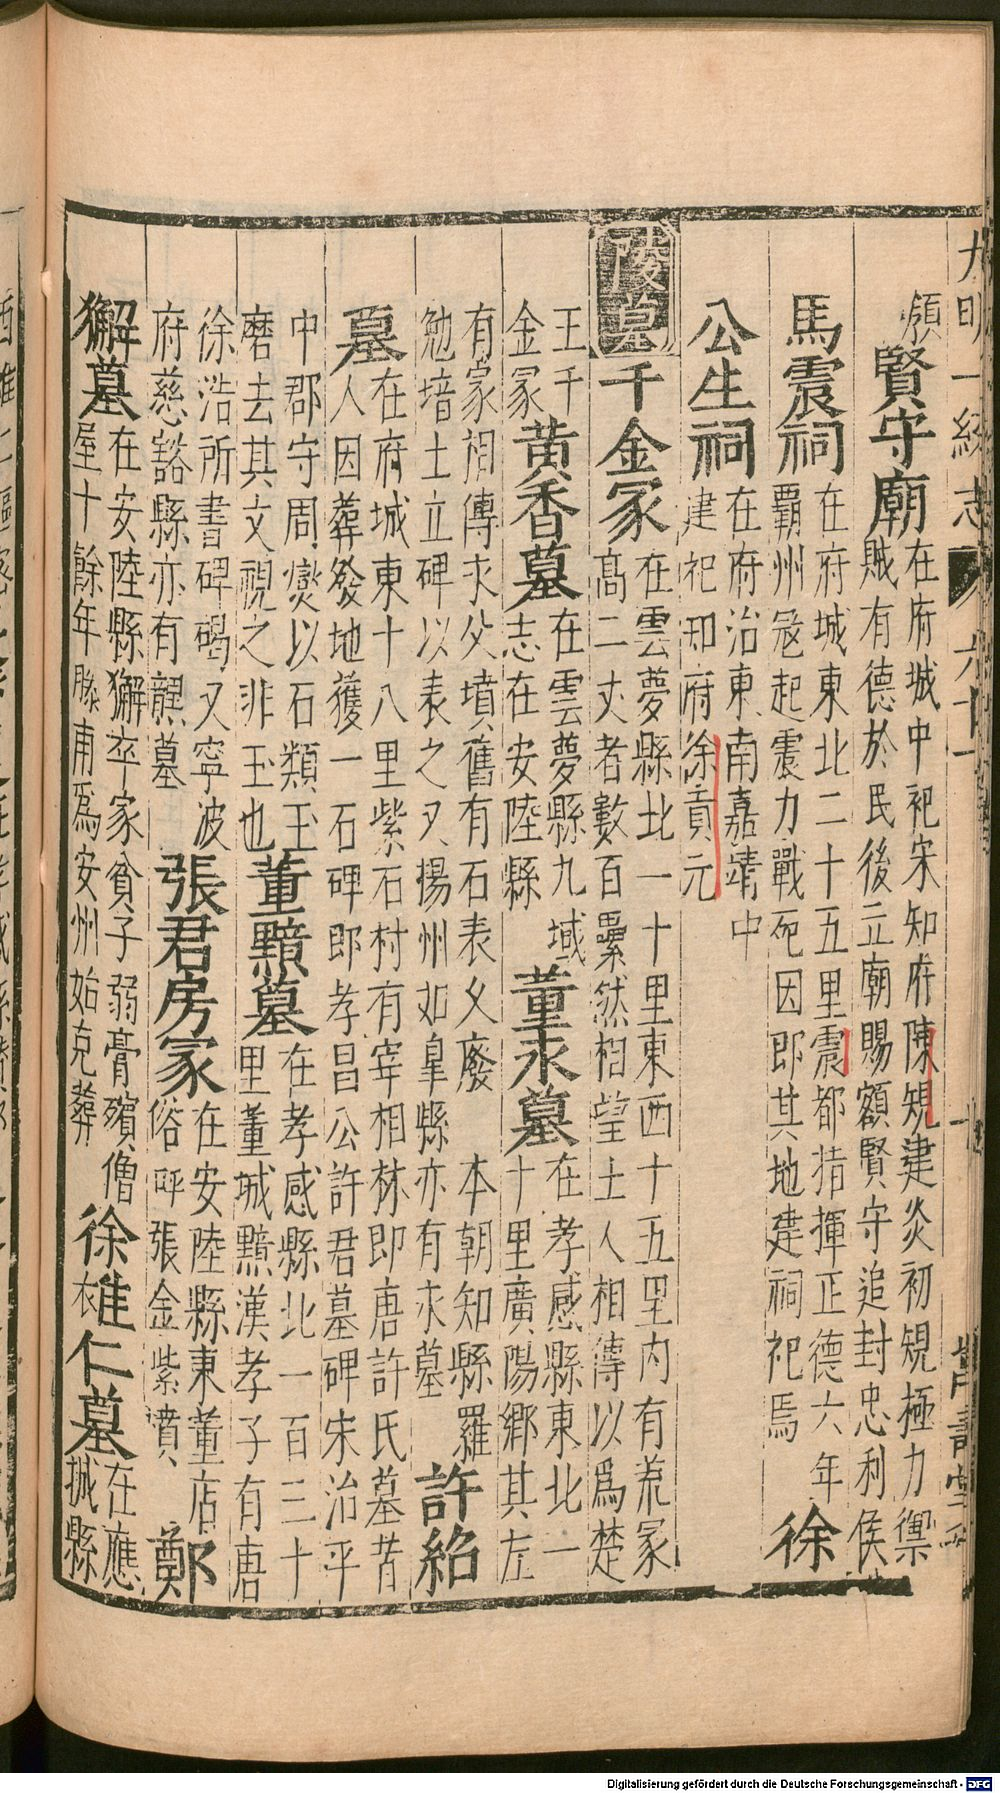 大明一統志
額賢守廟在府城中祀宋知府陳規建炎初規極力禦
賊有德於民後立廟賜額賢守追封忠利侯
馬震祠在府城東北二十五里震都指揮正德六年
霸州冦起震力戰死因即其地建祠祀焉徐
公生祠在府治東南嘉靖中
建祀知府徐貢元
陵墓千金冢在雲夢縣北一十里東西十五里内有荒冢
高二丈者數百纍然相望土人相傳以爲楚
王千
金冢黄香墓在雲夢縣九域
志在安陸縣董永墓在孝感縣東北一
十里廣陽鄉其左
有冢相傳永父墳舊有石表久廢本朝知縣羅
勉培土立碑以表之又揚州如皐縣亦有永墓許紹
墓在府城東十八里紫石村有宰相林即唐許氏墓昔
人因葬發地獲一石碑即孝昌公許君墓碑宋治平
中郡守周爕以石類玉
磨去其文視之非玉也董黯墓在孝感縣北一百三十
里董城黯漢孝子有唐
徐浩所書碑碣又寧波
府慈谿縣亦有黯墓張君房冢在安陸縣東董店
俗呼張金紫墳鄭
獬墓在安陸縣獬卒家貧子弱膏殯僧
屋十餘年滕甫爲安州始克葬徐惟仁墓在應
城縣
Digitalisierung gefördert durch die Deutsche Forschungsgemeinschaft - DFG